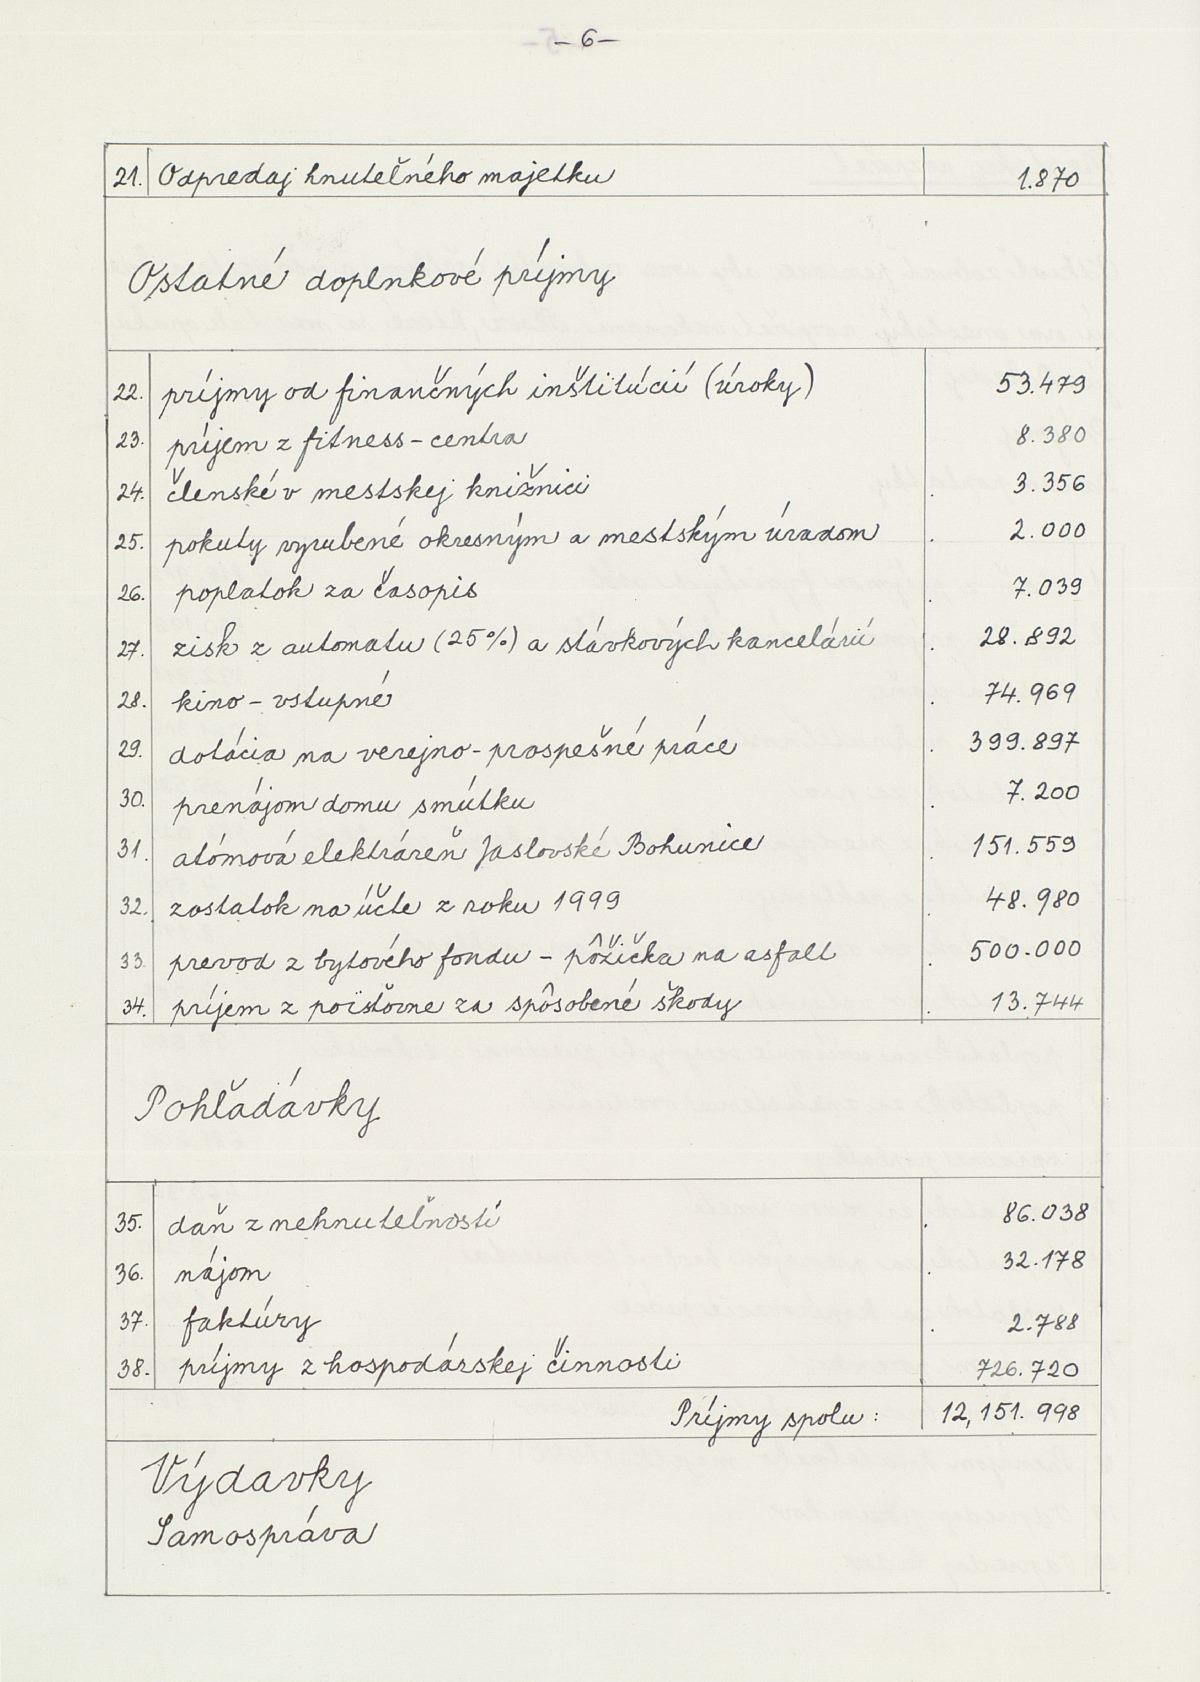 - 6 -
21. Odpredaj hnuteľného majetku 1.870
Ostatné doplnkové príjmy
22. príjmy od finančných inštitúcií (úroky) 53.479
23. príjem z fitness-centra 8.380
24. členské v mestskej knižnici 3.356
25. pokuty vyrubené okresným a mestským úradom 2.000
26. poplatok za časopis 7.039
27. zisk z automatu (25%) a stávkových kancelárií 28.892
28. kino - vstupné 74.969
29. dotácia na verejno-prospešné práce 399.897
30. prenájom domu smútku 7.200
31. atómová elektráreň Jaslovské Bohunice 151.559
32. zostatok na účte z roku 1999 48.980
33. prevod z bytového fondu - pôžička na asfalt 500.000
34. príjem z poisťovne za spôsobené škody 13.744
Pohľadávky
35. daň z nehnuteľností 86.038
36. nájom 32.178
37. faktúry 2.788
38. príjmy z hospodárskej činnosti 726.720
Príjmy spolu: 12,151.998
Výdavky
Samospráva